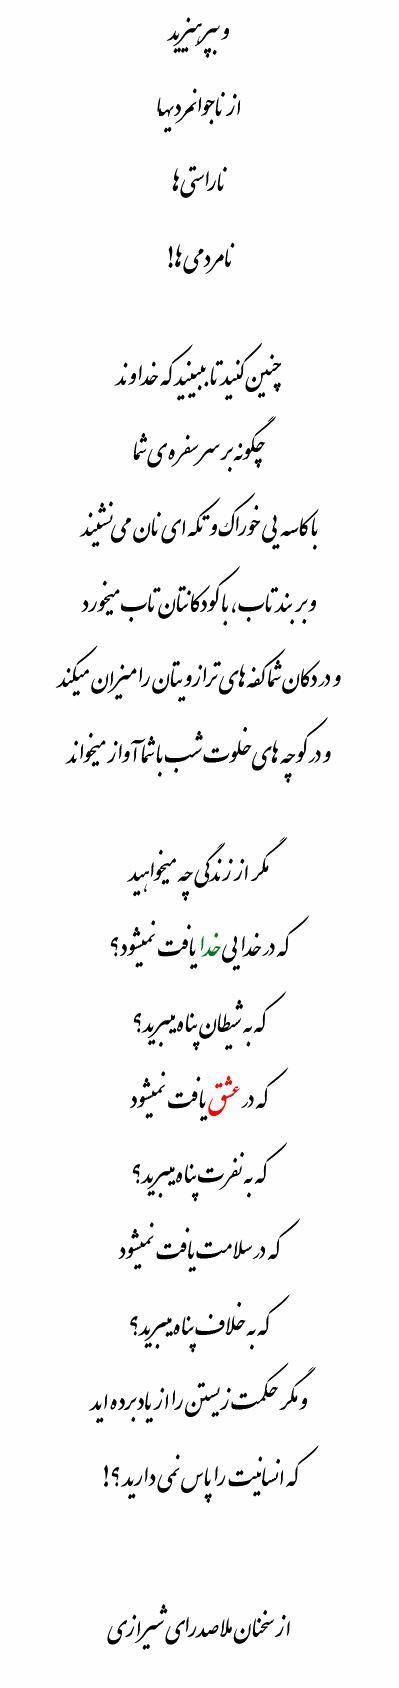 و بپرهیزید
از ناجوانمردیها
ناراستی ها
نامردمی ها!
چنین کنید تا ببینید که خداوند
چگونه بر سر سفره ی شما
با کاسه یی خوراک و تکه ای نان می نشیند
و بر بند تاب، با کودکانتان تاب میخورد
و در دکان شما کفه های ترازویتان را میزان میکند
و در کوچه های خلوت شب با شما آواز میخواند
مگر از زندگی چه میخواهید
که در خدایی خدا یافت نمیشود؟
که به شیطان پناه میبرید؟
که در عشق یافت نمیشود
که به نفرت پناه میبرید؟
که در سلامت یافت نمیشود
که به خلاف پناه میبرید؟
و مگر حکمت زیستن را از یاد برده اید
که انسانیت را پاس نمی دارید؟!
از سخنان ملاصدرای شیرازی